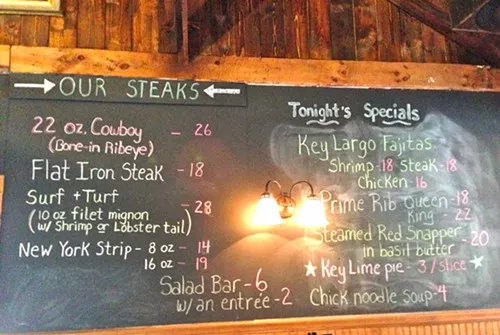 OUR STEAKS
22 oz. Cowboy - 26
(Bone-in Ribeye)
Flat Iron Steak - 18
Surf + Turf - 28
(10 oz filet mignon
w/ Shrimp or Lobster tail)
New York Strip - 8 oz - 14
16 oz - 19
Salad Bar - 6
w/ an entrée - 2
Tonight's Specials
Key Largo Fajitas
Shrimp - 18 Steak - 18
Chicken 16
Prime Rib Queen - 18
King - 22
Steamed Red Snapper
in basil butter - 20
Key Lime pie - 3/slice
Chick noodle soup - 4